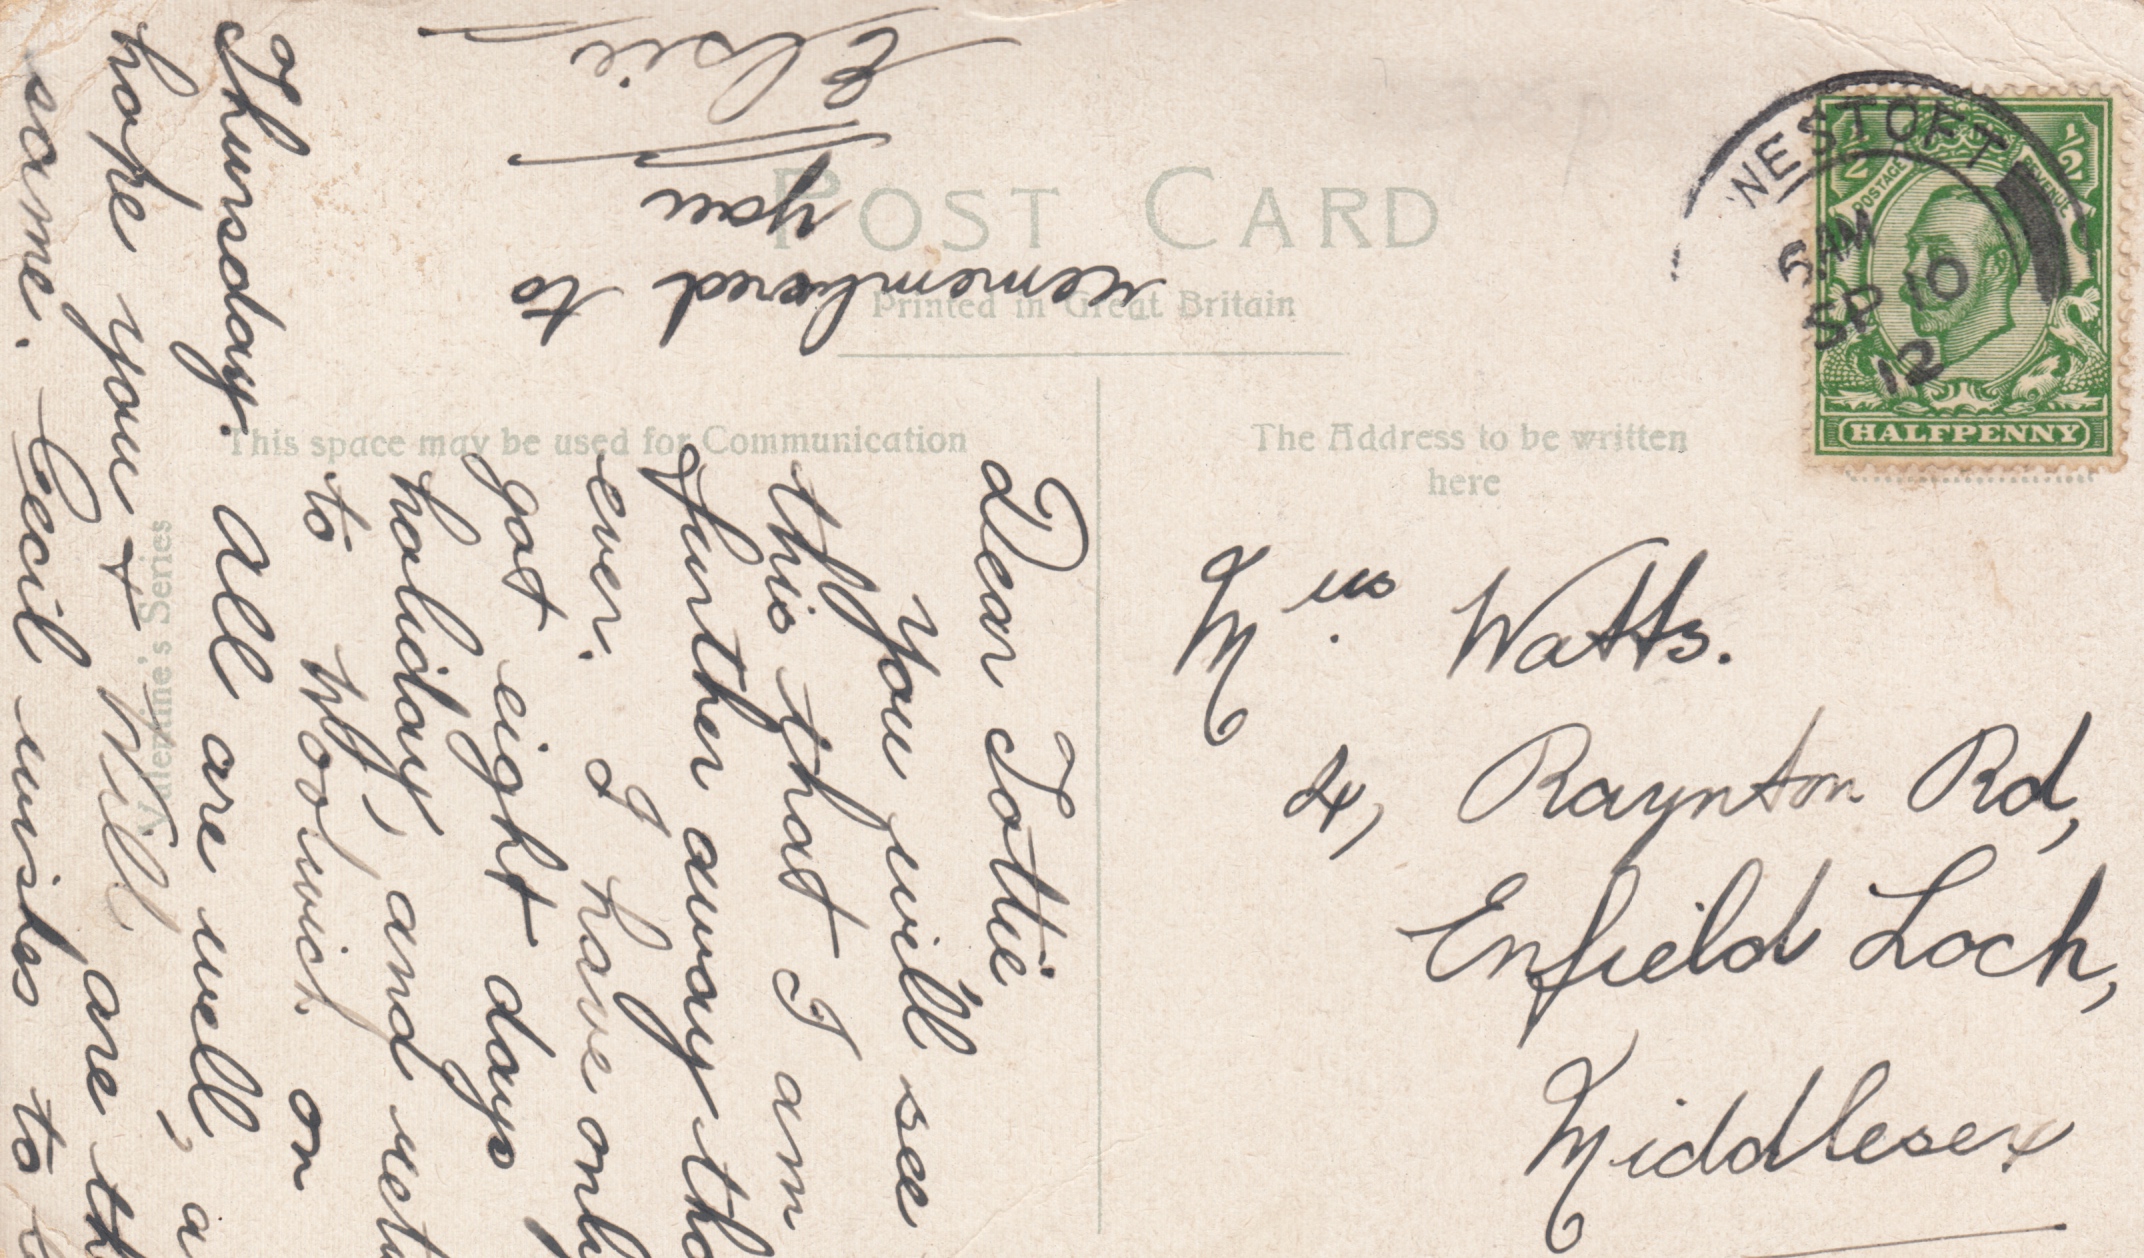 POST CARD
Printed in Great Britain
This space may be used for Communication
The Address to be written
here
Valentine's Series
NESTOFT
6 AM
SP 10
12
POSTAGE
REVENUE
½
½
HALFPENNY
Mrs. Watts.
4, Raynton Rd,
Enfield Loch,
Middlesex
Dear Tottie
You will see
this that I am
further away
ever. I have only
got eight days
holiday, and
to Woolwich on
Thursday. All are well,
hope you + Will are
same. Cecil wishes to
remembered to
you
Elsie